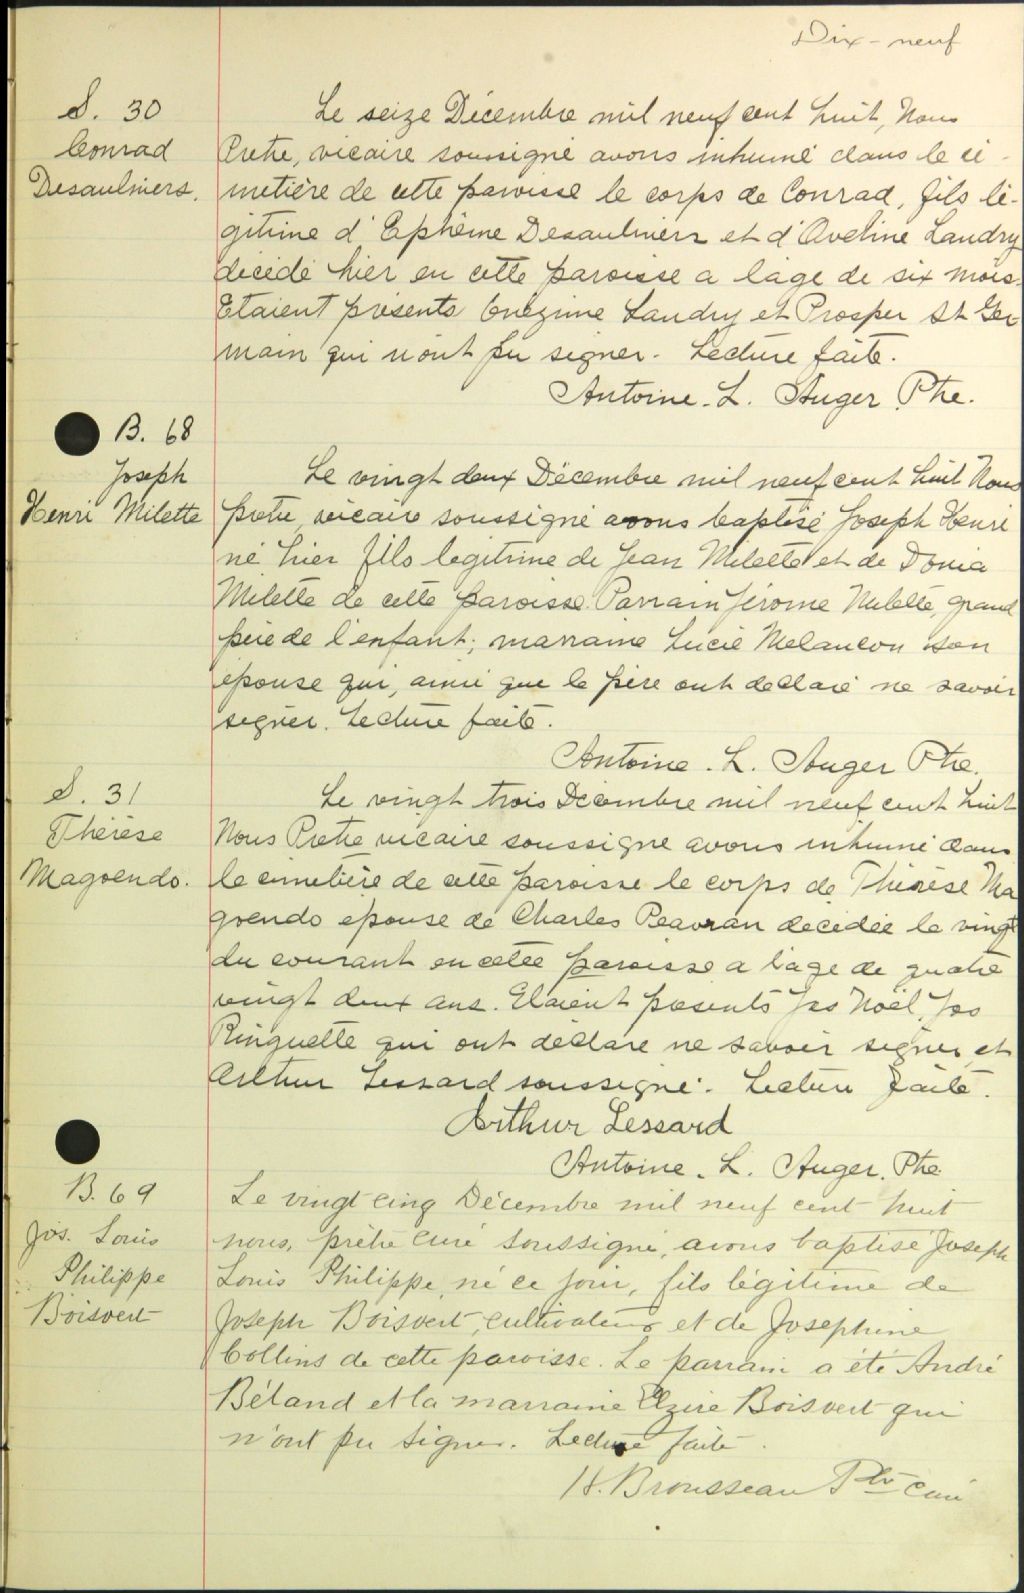 Dix-neuf
S. 30
Conrad
Desaulniers.
Le seize Décembre mil neuf cent huit, Nous
Pretre, vicaire soussigné avons inhumé dans le ci-
metière de cette paroisse le corps de Conrad, fils lé-
gitime d'Ephème Desaulniers et d'Aveline Landry
décédé hier en cette paroisse a l'age de six mois.
Etaient présents Onézime Landry et Prosper St Ger
main qui n'ont pu signer. Lecture faite.
Antoine. L. Auger Ptre.
B. 68
Joseph
Henri Milette
Le vingt deux Décembre mil neuf cent huit Nous
pretre, vicaire soussigné avons baptisé Joseph Henri
né hier fils legitime de Jean Milette et de Donia
Milette de cette paroisse. Parrain Jérome Milette, grand
père de l'enfant; marraine Lucie Melancon son
épouse qui, ainsi que le père ont declaré ne savoir
signer. Lecture faite.
Antoine. L. Auger Ptre.
S. 31
Thérèse
Magoendo.
Le vingt trois Décembre mil neuf cent huit
Nous Pretre vicaire soussigné avons inhumé dans
le cimetière de cette paroisse le corps de Thérèse Ma
goendo epouse de Charles décédée le vingt
du courant en cette paroisse a l'age de quatre
vingt deux ans. Etaient présents Jos Noël, Jos
Ringuette qui ont déclaré ne savoir signer et
Arthur Lessard soussigné. Lecture faite.
Arthur Lessard
Antoine. L. Auger. Ptre
B. 69
Jos. Louis
Philippe
Boisvert
Le vingt cinq Décembre mil neuf cent huit
nous, prêtre curé soussigné, avons baptisé Joseph
Louis Philippe, né ce jour, fils légitime de
Joseph Boisvert, cultivateur et de Josephine
Collins de cette paroisse. Le parrain a été André
Béland et la marraine Elzire Boisvert qui
n'ont pu signer. Lecture faite.
H. Brousseau Ptre curé